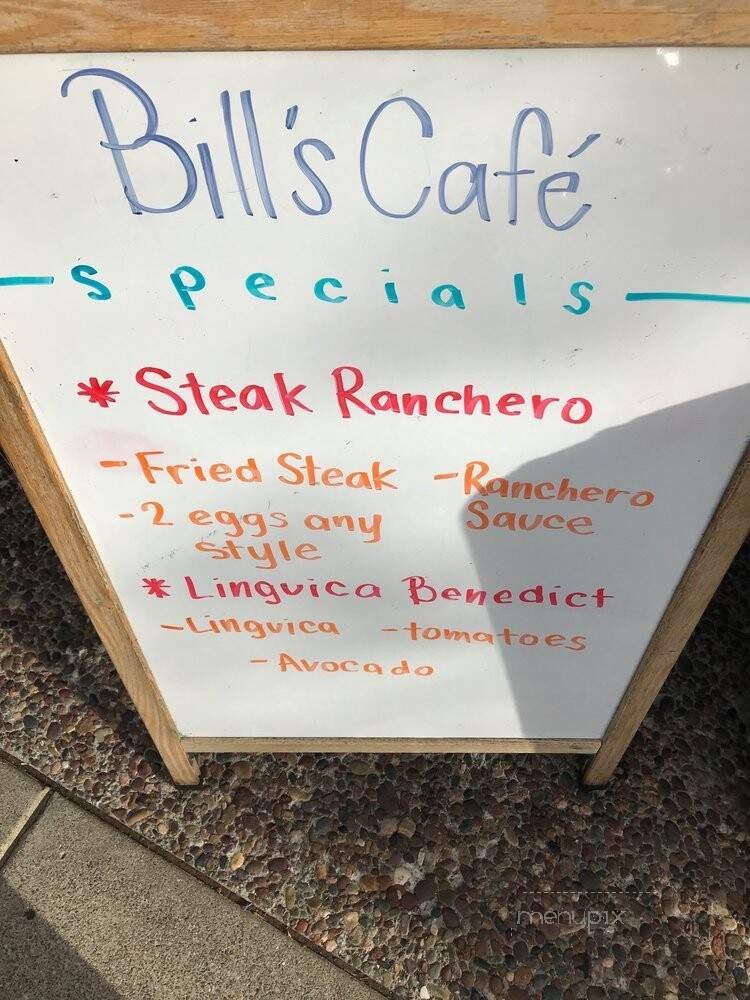 Bill's Café
specials
* Steak Ranchero
- Fried Steak - Ranchero
- 2 eggs any Sauce
style
* Linguica Benedict
- Linguica - tomatoes
- Avocado
menupix